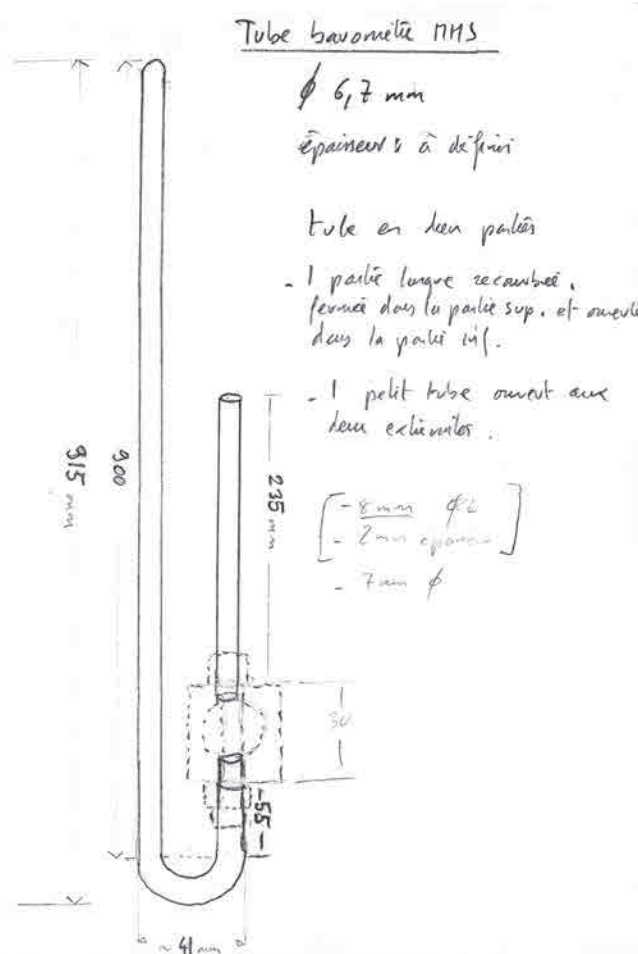 Tube baromètre MHS
ϕ 6,7 mm
épaisseur : à définir
tube en deux parties
- 1 partie longue recourbée,
fermée dans la partie sup. et ouverte
dans la partie inf.
- 1 petit tube ouvert aux
deux extrémités.
- 8 mm
- 2 mm
- 7 mm ϕ
915 mm
900
235 mm
-55-
~ 41 mm